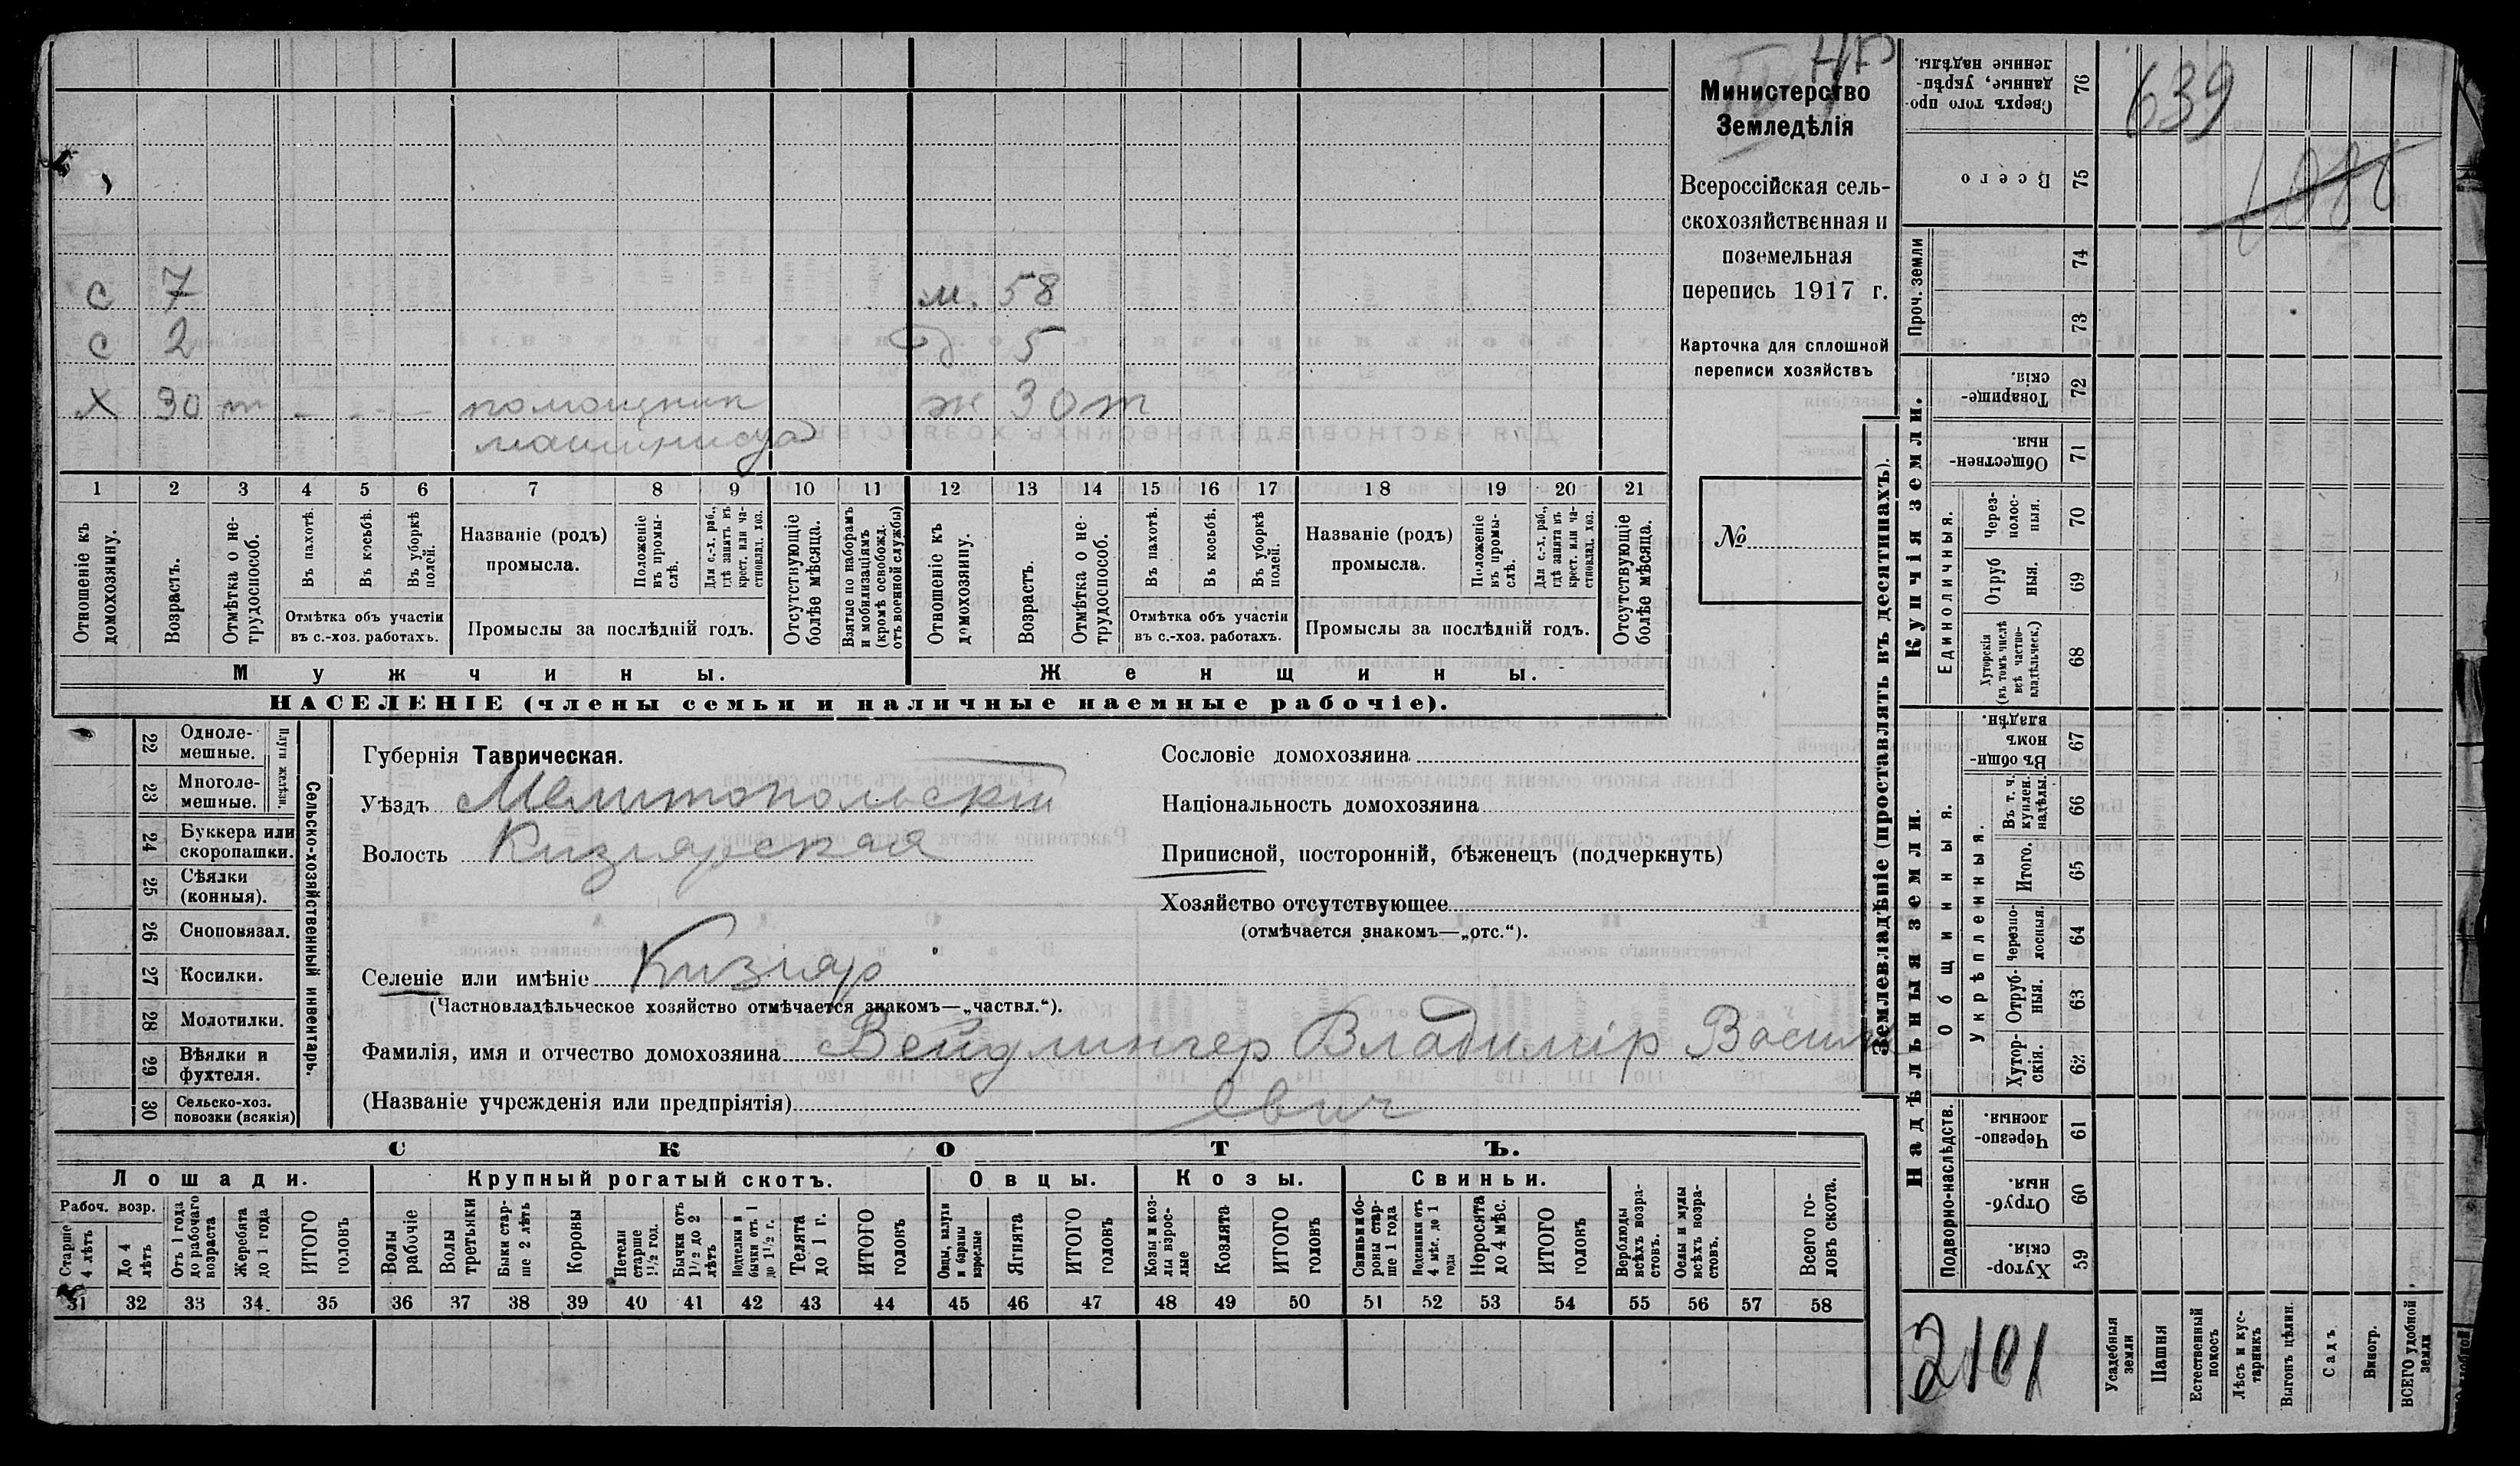 Министерство
Земледѣлія
Всероссійская сель-
скохозяйственная и
поземельная
перепись 1917 г.
Карточка для сплошной
переписи хозяйствъ
№
с 7 м. 58
с 2 д 5
х 30 т - - - помощник ж 30 т
машиниста
1 2 3 4 5 6 7 8 9 10 11 12 13 14 15 16 17 18 19 20 21
Отношеніе къ домохозяину.
Возрастъ.
Отмѣтка о не-трудоспособ.
Въ пахотѣ.
Въ косьбѣ.
Въ уборкѣ полей.
Отмѣтка объ участіи
въ с.-хоз. работахъ.
Названіе (родъ)
промысла.
Положеніе въ промы-слѣ.
Для с.-х. раб., гдѣ занятъ въ крест. или ча-стновлад. хоз.
Промыслы за послѣдній годъ.
Отсутствующіе болѣе мѣсяца.
Взятые по наборамъ и мобилизаціямъ (кромѣ освобожд. отъ военной службы)
Отношеніе къ домохозяину.
Возрастъ.
Отмѣтка о не-трудоспособ.
Въ пахотѣ.
Въ косьбѣ.
Въ уборкѣ полей.
Отмѣтка объ участіи
въ с.-хоз. работахъ.
Названіе (родъ)
промысла.
Положеніе въ промы-слѣ.
Для с.-х. раб., гдѣ занята въ крест. или ча-стновлад. хоз.
Промыслы за послѣдній годъ.
Отсутствующіе болѣе мѣсяца.
Мужчины. Женщины.
НАСЕЛЕНІЕ (члены семьи и наличные наемные рабочіе).
Сельско-хозяйственный инвентарь.
Плуги желѣзн.
22 Одноле-мешные.
23 Многоле-мешные.
24 Буккера или скоропашки.
25 Сѣялки (конныя).
26 Сноповязал.
27 Косилки.
28 Молотилки.
29 Вѣялки и фухтеля.
30 Сельско-хоз. повозки (всякія)
Губернія Таврическая.
Уѣздъ Мелитопольскій
Волость Кизиярская
Селеніе или имѣніе Кизияр
(Частновладѣльческое хозяйство отмѣчается знакомъ—„частвл.“).
Фамилія, имя и отчество домохозяина Вейдлингер Владимір Василь
(Названіе учрежденія или предпріятія) евич
Сословіе домохозяина
Національность домохозяина
Приписной, посторонній, бѣженецъ (подчеркнуть)
Хозяйство отсутствующее
(отмѣчается знакомъ—„отс.“).
СКОТЪ.
Лошади. Крупный рогатый скотъ. Овцы. Козы. Свиньи.
Рабоч. возр.
Старше 4 лѣтъ
До 4 лѣтъ
Отъ 1 года до рабочаго возраста
Жеребята до 1 года
ИТОГО головъ
Волы рабочіе
Волы третьяки
Быки стар-ше 2 лѣтъ
Коровы
Нетели старше 1½ год.
Бычки отъ 1½ до 2 лѣтъ
Подтелки и бычки отъ 1 до 1½ г.
Телята до 1 г.
ИТОГО головъ
Овцы, валухи и бараны взрослые
Ягнята
ИТОГО головъ
Козы и коз-лы взрос-лые
Козлята
ИТОГО головъ
Свиньи и бо-ровы стар-ше 1 года
Подсвинки отъ 4 мѣс. до 1 года
Поросята до 4 мѣс.
ИТОГО головъ
Верблюды всѣхъ возра-стовъ.
Ослы и мулы всѣхъ возра-стовъ.
Всего го-ловъ скота.
31 32 33 34 35 36 37 38 39 40 41 42 43 44 45 46 47 48 49 50 51 52 53 54 55 56 57 58
Землевладѣніе (проставлять въ десятинахъ).
Надѣльныя земли. Купчія земли. Проч. земли
Подворно-наслѣдств.
Общинныя.
Укрѣпленныя.
Единоличныя.
76 Сверхъ того про-данные, укрѣп-ленные надѣлы.
75 Всего
74
73
72 Товарище-скія.
71 Обществен-ныя.
70 Через-полос-ныя.
69 Отруб ныя.
68 Хуторскія (въ томъ числѣ всѣ частно-владѣльческ.)
67 Въ общи-номъ владѣн.
66 Въ т. ч. куплен. надѣлы.
65 Итого.
64 Черезпо-лосныя.
63 Отруб-ныя.
62 Хутор-скія.
61 Черезпо-лосныя.
60 Отруб-ныя.
59 Хутор-скія.
639
2101
Усадебныя земли
Пашня
Естественный покосъ
Лѣсъ и кус-тарникъ
Выгонъ цѣлин.
Садъ
Виногр.
ВСЕГО удобной земли